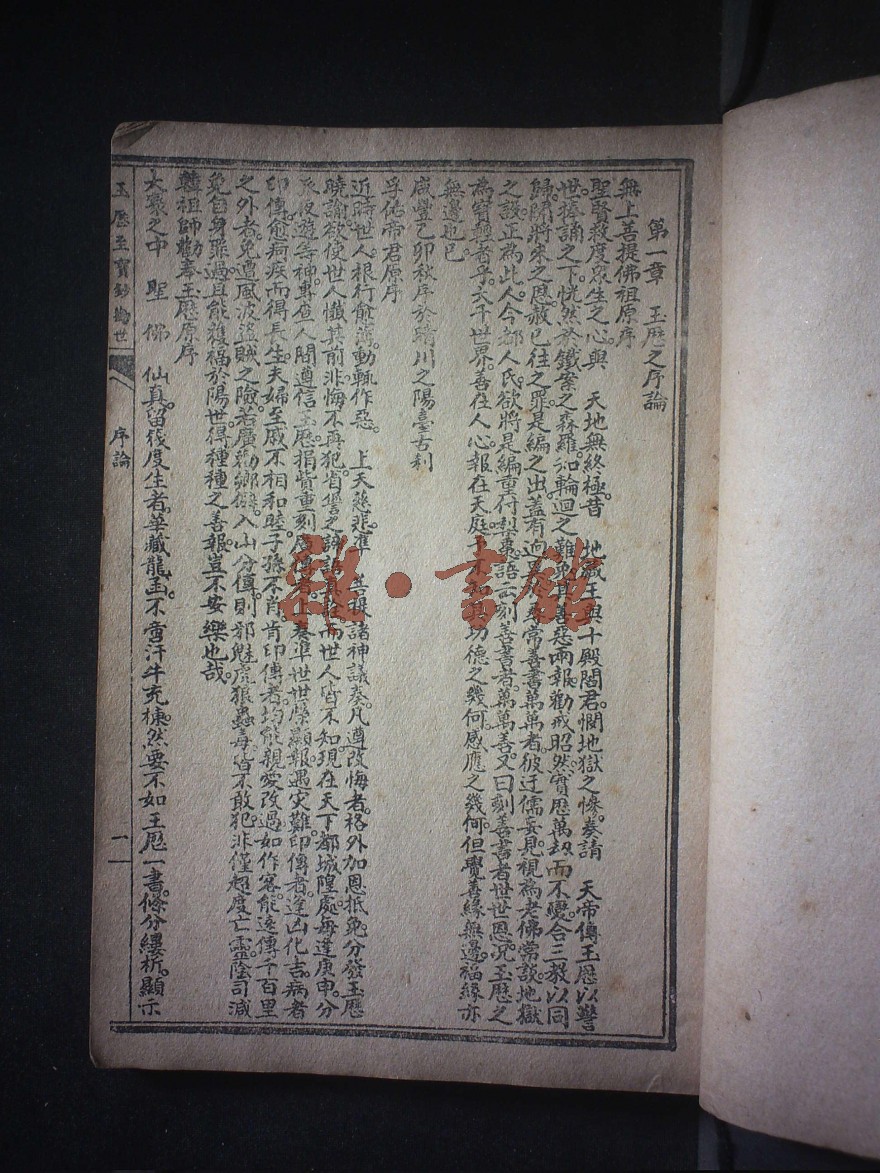 第一章　玉歷之序論
無上菩提佛祖原序
聖賢救度眾生之心與　天地無終極昔　地藏王與十殿閻君憫地獄之慘奏請　天帝傳玉歷以警
世捧誦之下恍然於鐵案之森羅知輪迴之難免善惡兩報勸戒昭然實歷萬劫而不變合三教以同
歸開將來之恩赦已往之罪是編之出蓋有逈尋常善書萬萬者彼迂儒妄見視為老佛常談地獄
之設正為此人今都人氏欲將是編重付梨棗語云刻善書者萬萬善又曰刻善書者世世恩况玉歷之
為寶典者乎大千世界善在人心報在天庭不知功德之幾何感應之幾何但覺善緣無邊福緣亦
無邊也已
咸豐己卯秋序於晴川之陽臺古刹
孚佑帝君原序
近時世人根行愈薄動輒作惡　上天慈悲准　菩提諸神議奏凡遵改悔者格外加恩抵免分發玉歷
曉諭欲使世人懺其前非悔不再犯省愆之諦語真詮而世人皆不知現在天下都城隍處每逢庚申分
派夜遊等神專查人間遵信玉歷捐貲重刻廣傳者上奏准世世榮顯報遇灾難印傳者逢凶化吉病者
印傳愈病疾而得長生夫婦至戚不相和睦子孫不肖肯印傳者均能親愛改過如作客能遠傳千百里
之外者免遭風波盜賊之險若廣勸鄉鄰入山分傳則邪魅虎狼蟲毒皆不敢犯非僅超度亡靈陰司減
免自身罪過且能獲福於陽世得種種之善報豈不安樂也哉
韓祖師勸奉玉歷原序
大寰之中　聖　佛　仙真留後度生者華藏龍函不啻汗牛充棟然要不如玉歷一書條分縷析顯示
玉歷至寶鈔勸世
序論
一
雜·書館